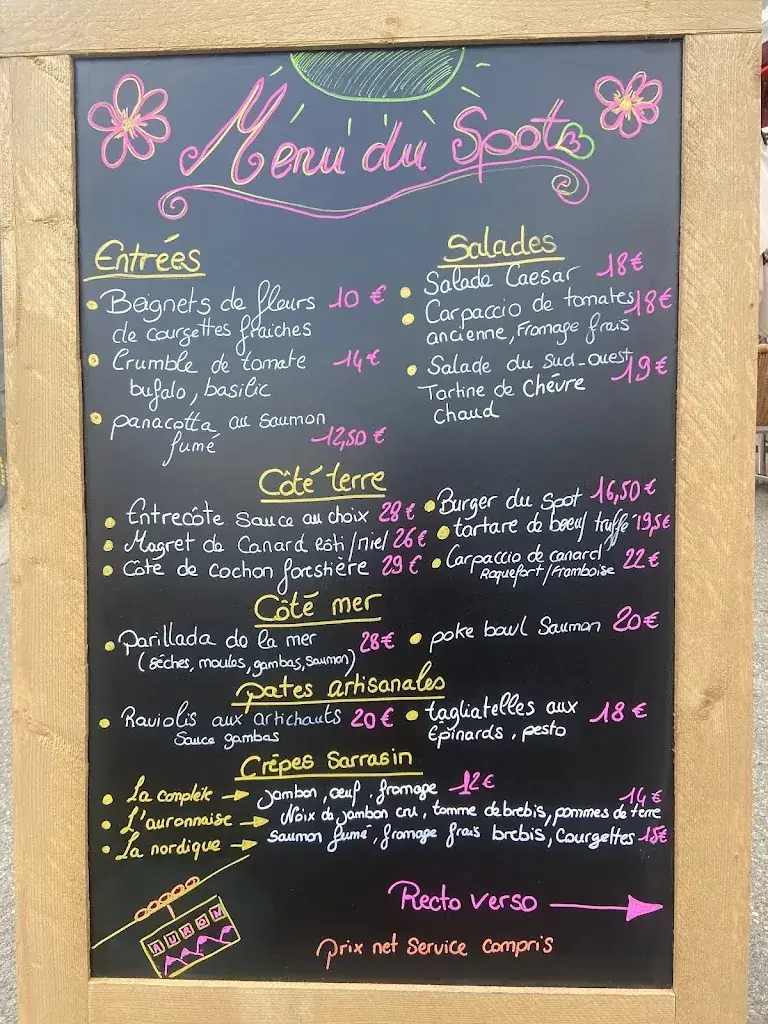 Menu du Spot
Entrées
• Beignets de fleurs 10 €
de courgettes fraiches
• Crumble de tomate 14 €
bufalo, basilic
• panacotta au saumon
fumé 12,50 €
Salades
• Salade Caesar 18 €
• Carpaccio de tomates 18 €
ancienne, Fromage frais
• Salade du sud-ouest 19 €
Tartine de Chévre
Chaud
Côté terre
• Entrecôte sauce au choix 28 €
• Magret de Canard rôti/miel 26 €
• Côte de cochon forestière 29 €
• Burger du Spot 16,50 €
• tartare de boeuf truffé 19,5 €
• Carpaccio de canard 22 €
Roquefort/Framboise
Côté mer
• Parillada de la mer 28 €
(sèches, moules, gambas, saumon)
• poke bowl Saumon 20 €
pates artisanales
• Raviolis aux artichauts 20 €
Sauce gambas
• tagliatelles aux 18 €
Epinards, pesto
Crêpes Sarrasin
• La complète → jambon, oeuf, fromage 12 €
• L'auronnaise → Noix de jambon cru, tomme de brebis, pommes de terre 14 €
• La nordique → saumon fumé, fromage frais brebis, courgettes 15 €
AURON
Recto verso →
prix net service compris